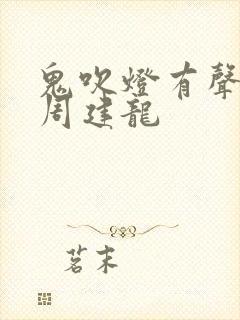 鬼吹燈有聲
周建龍
茗末